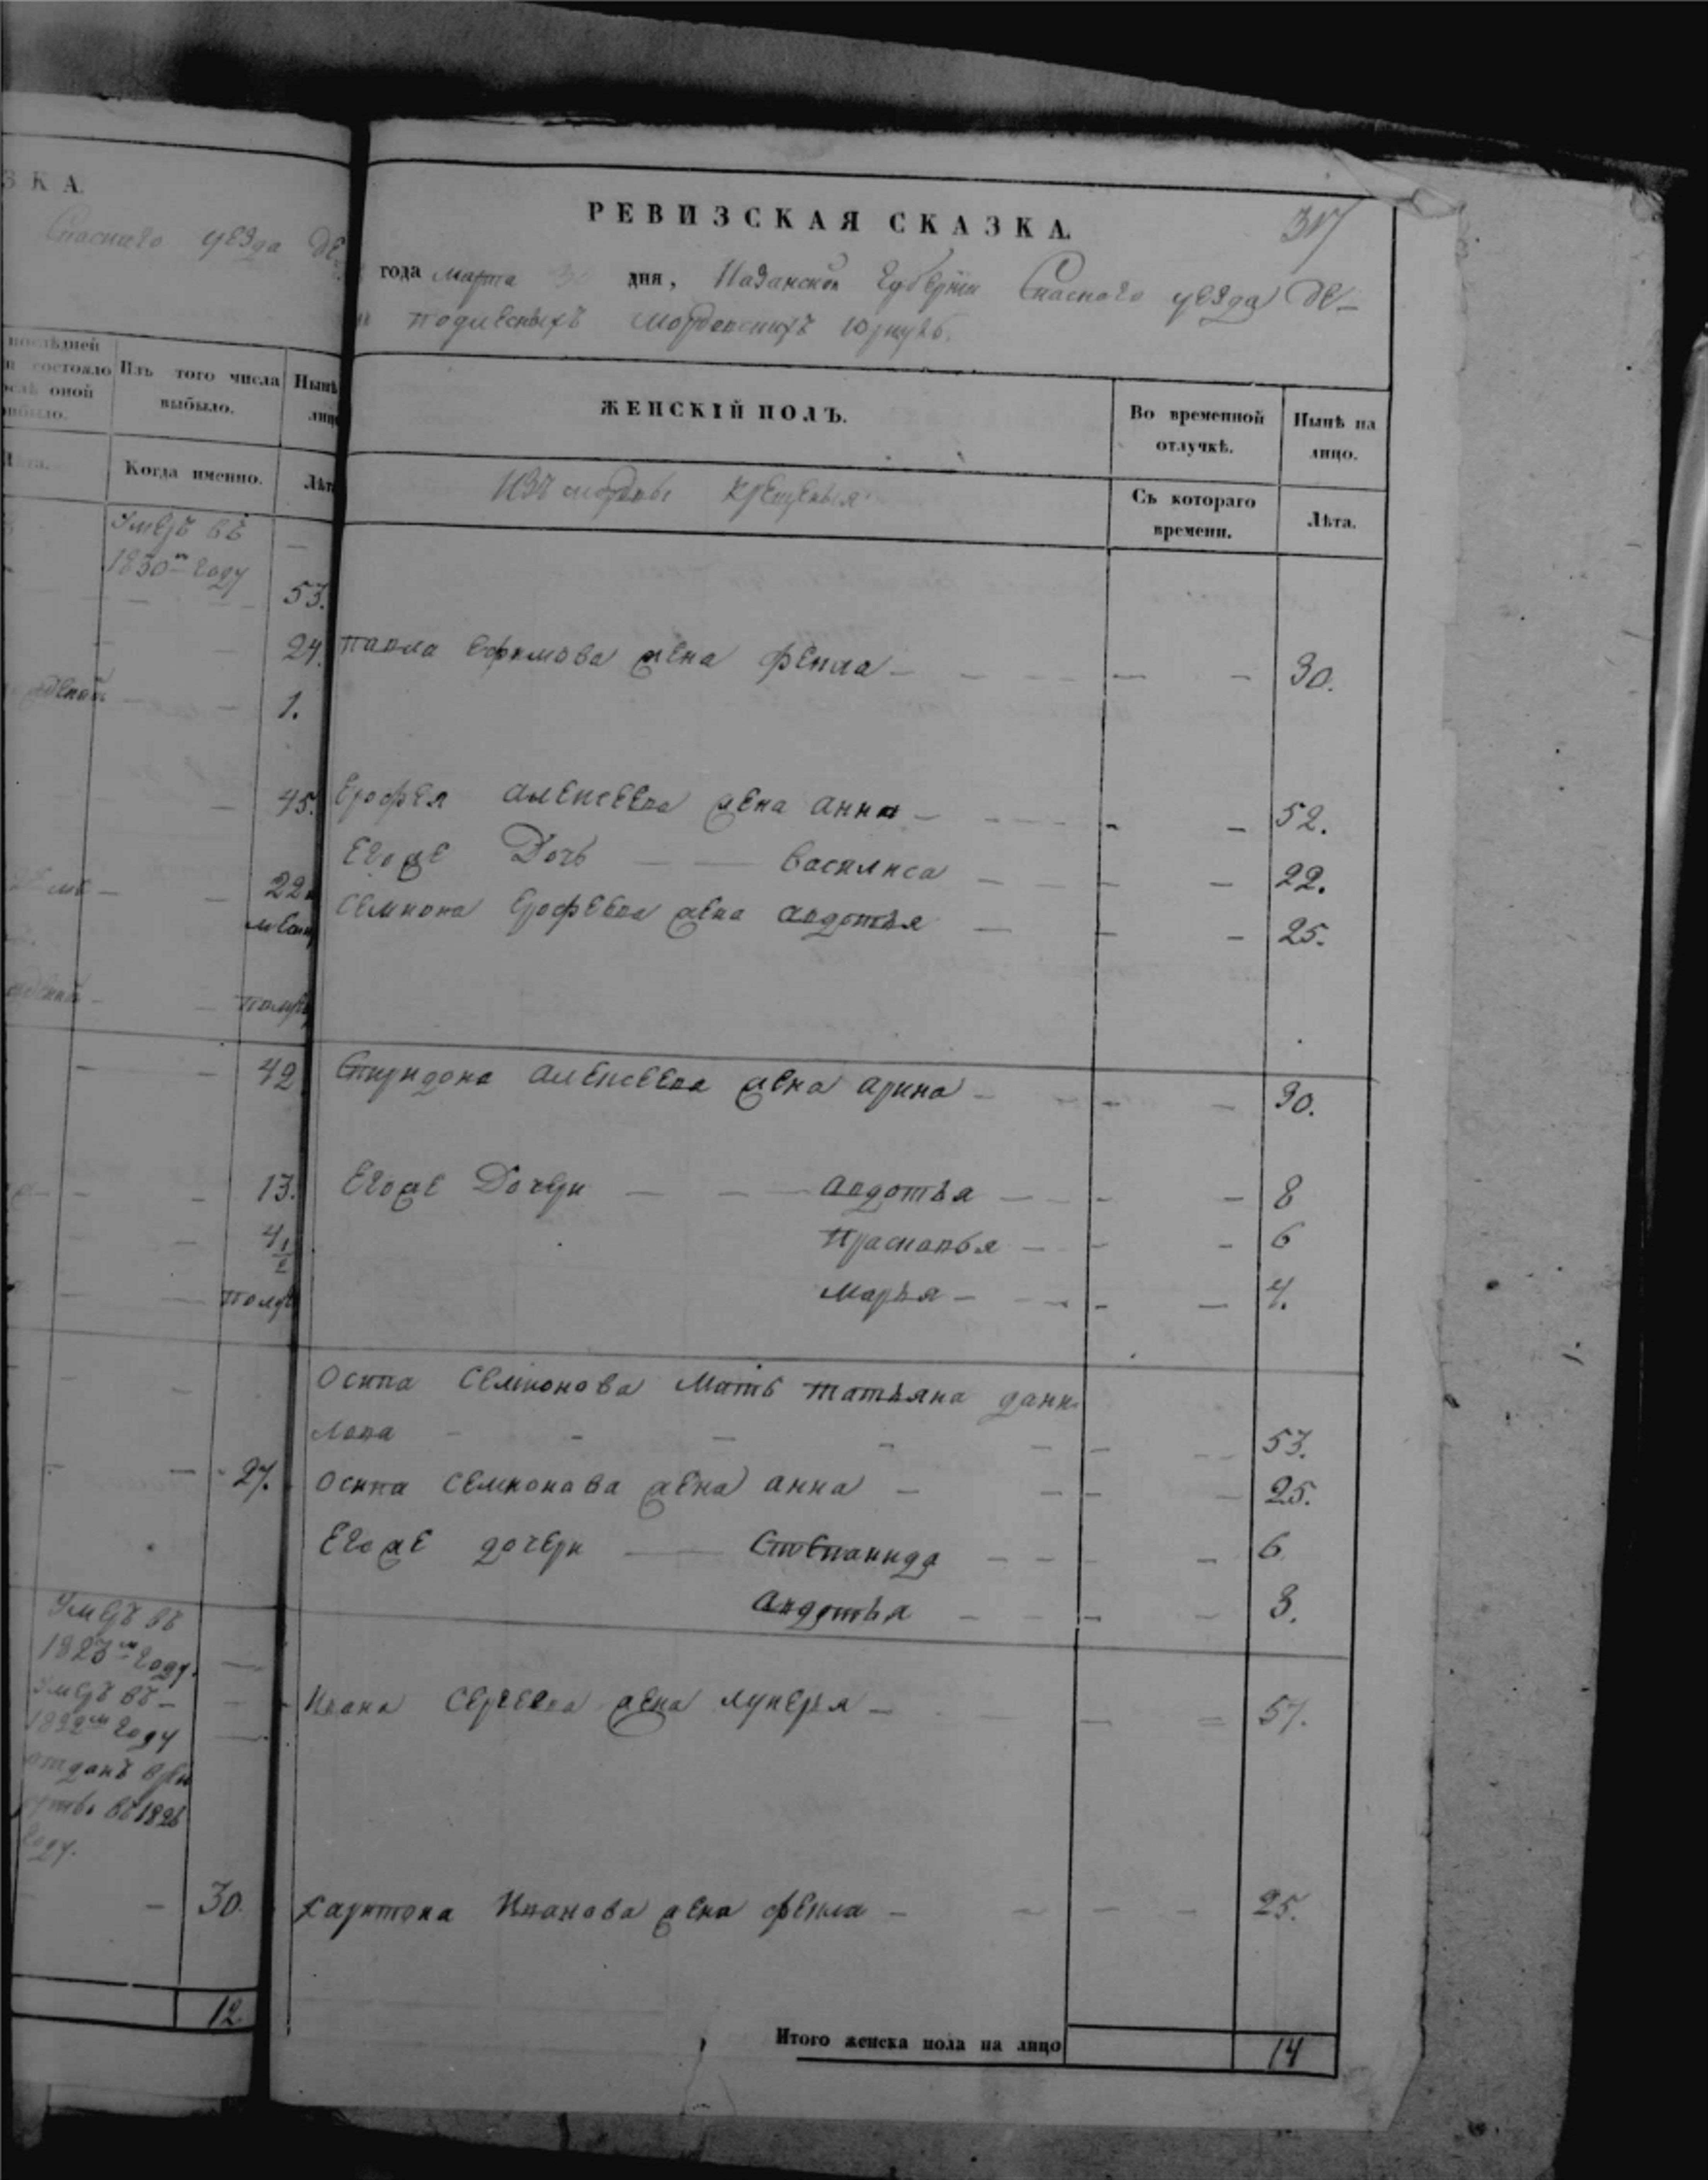 З К А.
Спаскаго уѣзда де
последней
состояло
оной
Изъ того числа
выбыло.
Нынѣ
лицо
Лѣта.
Когда именно.
Лѣт
Умеръ въ
1830м году
—
53.
24.
1.
45.
22
42
13.
4 1/2
полу
27.
Умеръ въ
1823м году.
Умеръ въ
1822м году
отданъ в рек
въ 1826
году.
30.
12.
РЕВИЗСКАЯ СКАЗКА.
317
года марта 30 дня, Казанской Губернии Спаского уезда де-
подлесныхъ мордовскихъ юрткуль
ЖЕНСКІЙ ПОЛЪ.
Во временной
отлучкѣ.
Нынѣ на
лицо.
Изъ мордвы крещеныя
Съ котораго
времени.
Лѣта.
Павла Ефимова жена фекла — 30.
Ерофея алексеева жена анна — 52.
Егоже Дочь — василиса — 22.
Семиона Ерофеева жена авдотья — 25.
Спиридона алексеева жена арина — 30.
Егоже Дочери — авдотья — 8
Прасковья — 6
Марья — 4.
Осипа Семионова Мать татьяна дани
лова — 53.
Осипа Семионова жена анна — 25.
Егоже дочери — Степанида — 6
авдотья — 3.
Ивана Сергеева жена лукерья — 57.
Харитона Иванова жена фекла — 25.
Итого женска пола на лицо 14